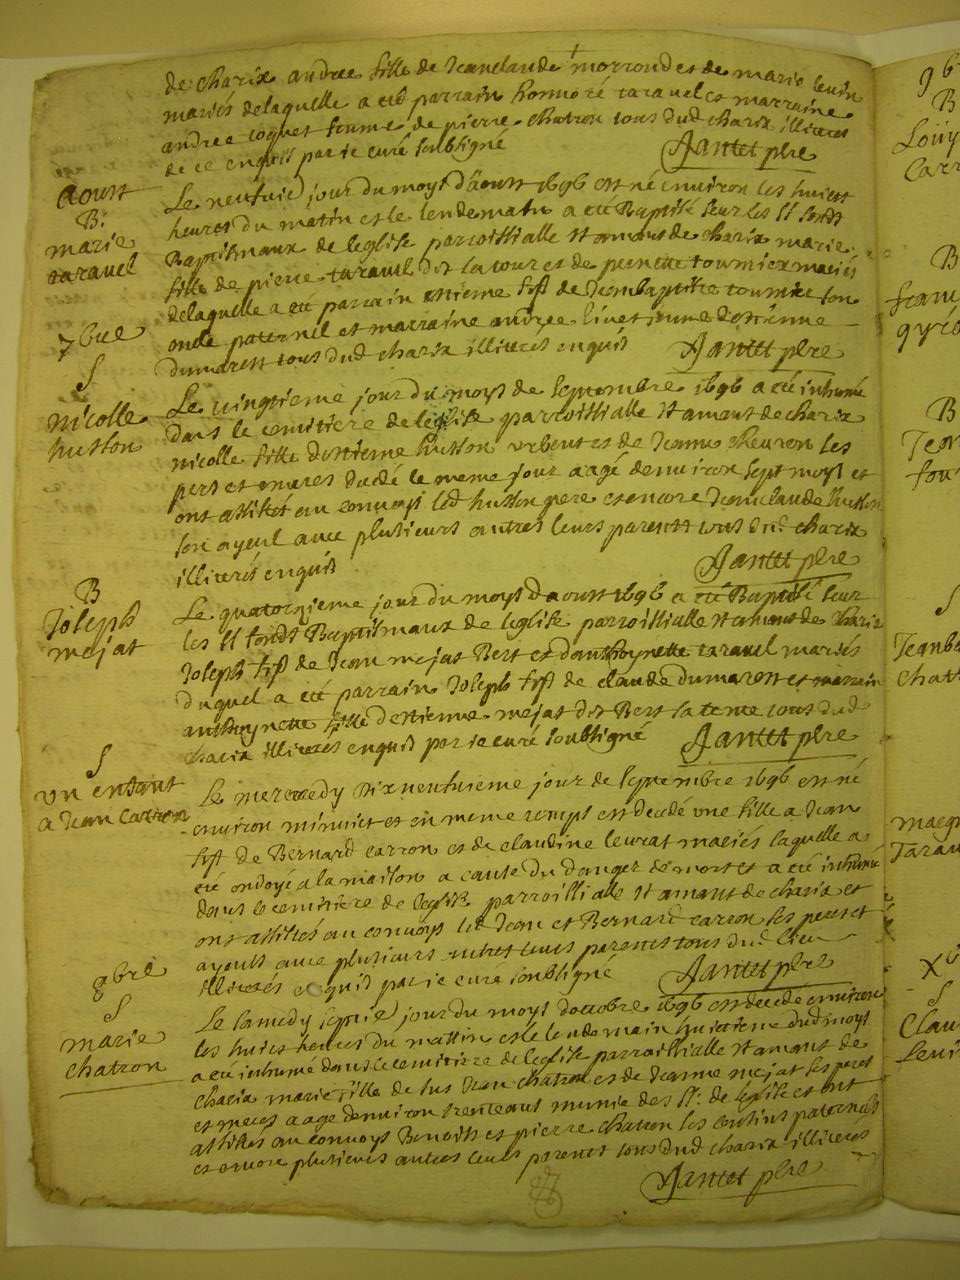 de charix andree fille de Jeanclaude morrond et de marie levrin
mariés de laquelle a eté parrain honnoré taravel et marraine
andree coquet femme de pierre chatron tous dud charix illiteres
de ce enquis par je curé soubsigné Jantet pbre
Aoust
B:
marie
taravel
Le neufuie jour du moys d'aoust 1696 est né environ les huict
heures du matin et le lendemain a eté Baptisé sur les st fonds
Baptismaux de leglise parroissialle st amant de charix marie
fille de pierre taravel dit la tour et de pernette tournier mariés
de laquelle a eté parrain estienne fils de Jeanbaptiste tournier son
oncle paternel et marraine andree livet femme destienne
dumarest tous dud charix illiteres enquis Jantet pbre
7bre
S
nicolle
husson
Le vingtieme jour du moys de septembre 1696 a eté inhumé
dans le cemitiere de leglise parroissialle st amant de charix
nicolle fille destienne husson et de Jeanne chevron ses
pere et meres decedé le meme jour aagé denviron sept moys et
ont assisté au convoys led husson pere et encore Jeanclaude husson
son ayeul avec plusieurs autres leurs parents tous dud charix
illiterés enquis Jantet pbre
B
Joseph
mejat
Le quatorzieme jour du moys d'aoust 1696 a eté Baptisé sur
les st fonds Baptismaux de leglise parroissialle st amant de charix
Joseph fils de Jean mejat Bert et d'anthoynette taravel mariés
duquel a eté parrain Joseph fils de claude dumarest et marrain
anthoynette fille destienne mejat dit Bert la tente tous dud
charix illiteres enquis par je curé soubsigné Jantet pbre
S
un enfant
a Jean Carron
Le mercredy dix neufuieme jour de septembre 1696 est né
environ minuict et en meme temps est decedé une fille a Jean
fils de Bernard carron et de claudine levrat mariés laquelle a
eté ondoyé a la maison a cause du danger de mort et a eté inhumé
dans le cemitiere de leglise parroissialle st amant de charix et
ont assistés au convoys led Jean et Bernard carron ses pere et
ayeuls avec plusieurs autres leurs parents tous dud lieu
illiterés enquis par je curé soubsigné Jantet pbre
8bre
S
marie
chatron
Le samedy sixuie jour du moys d'octobre 1696 est decedé environ
les huict heures du mattin et le lendemain huictieme dud moys
a eté inhumé dans le cemitiere de leglise parroissialle st amant de
charix marie fille de fut Jean chatron et de Jeanne mejat ses peres
et meres aagé denviron trente ans munie des st: de leglise et ont
assistes au convoys Benoist et pierre chatron ses cousins paternels
et encore plusieurs autres leurs parents tous dud charix illiterés
Jantet pbre
9b
B
Louy
Carr
B
B
S
Jeanb
chatt
Tarau
S
Clau